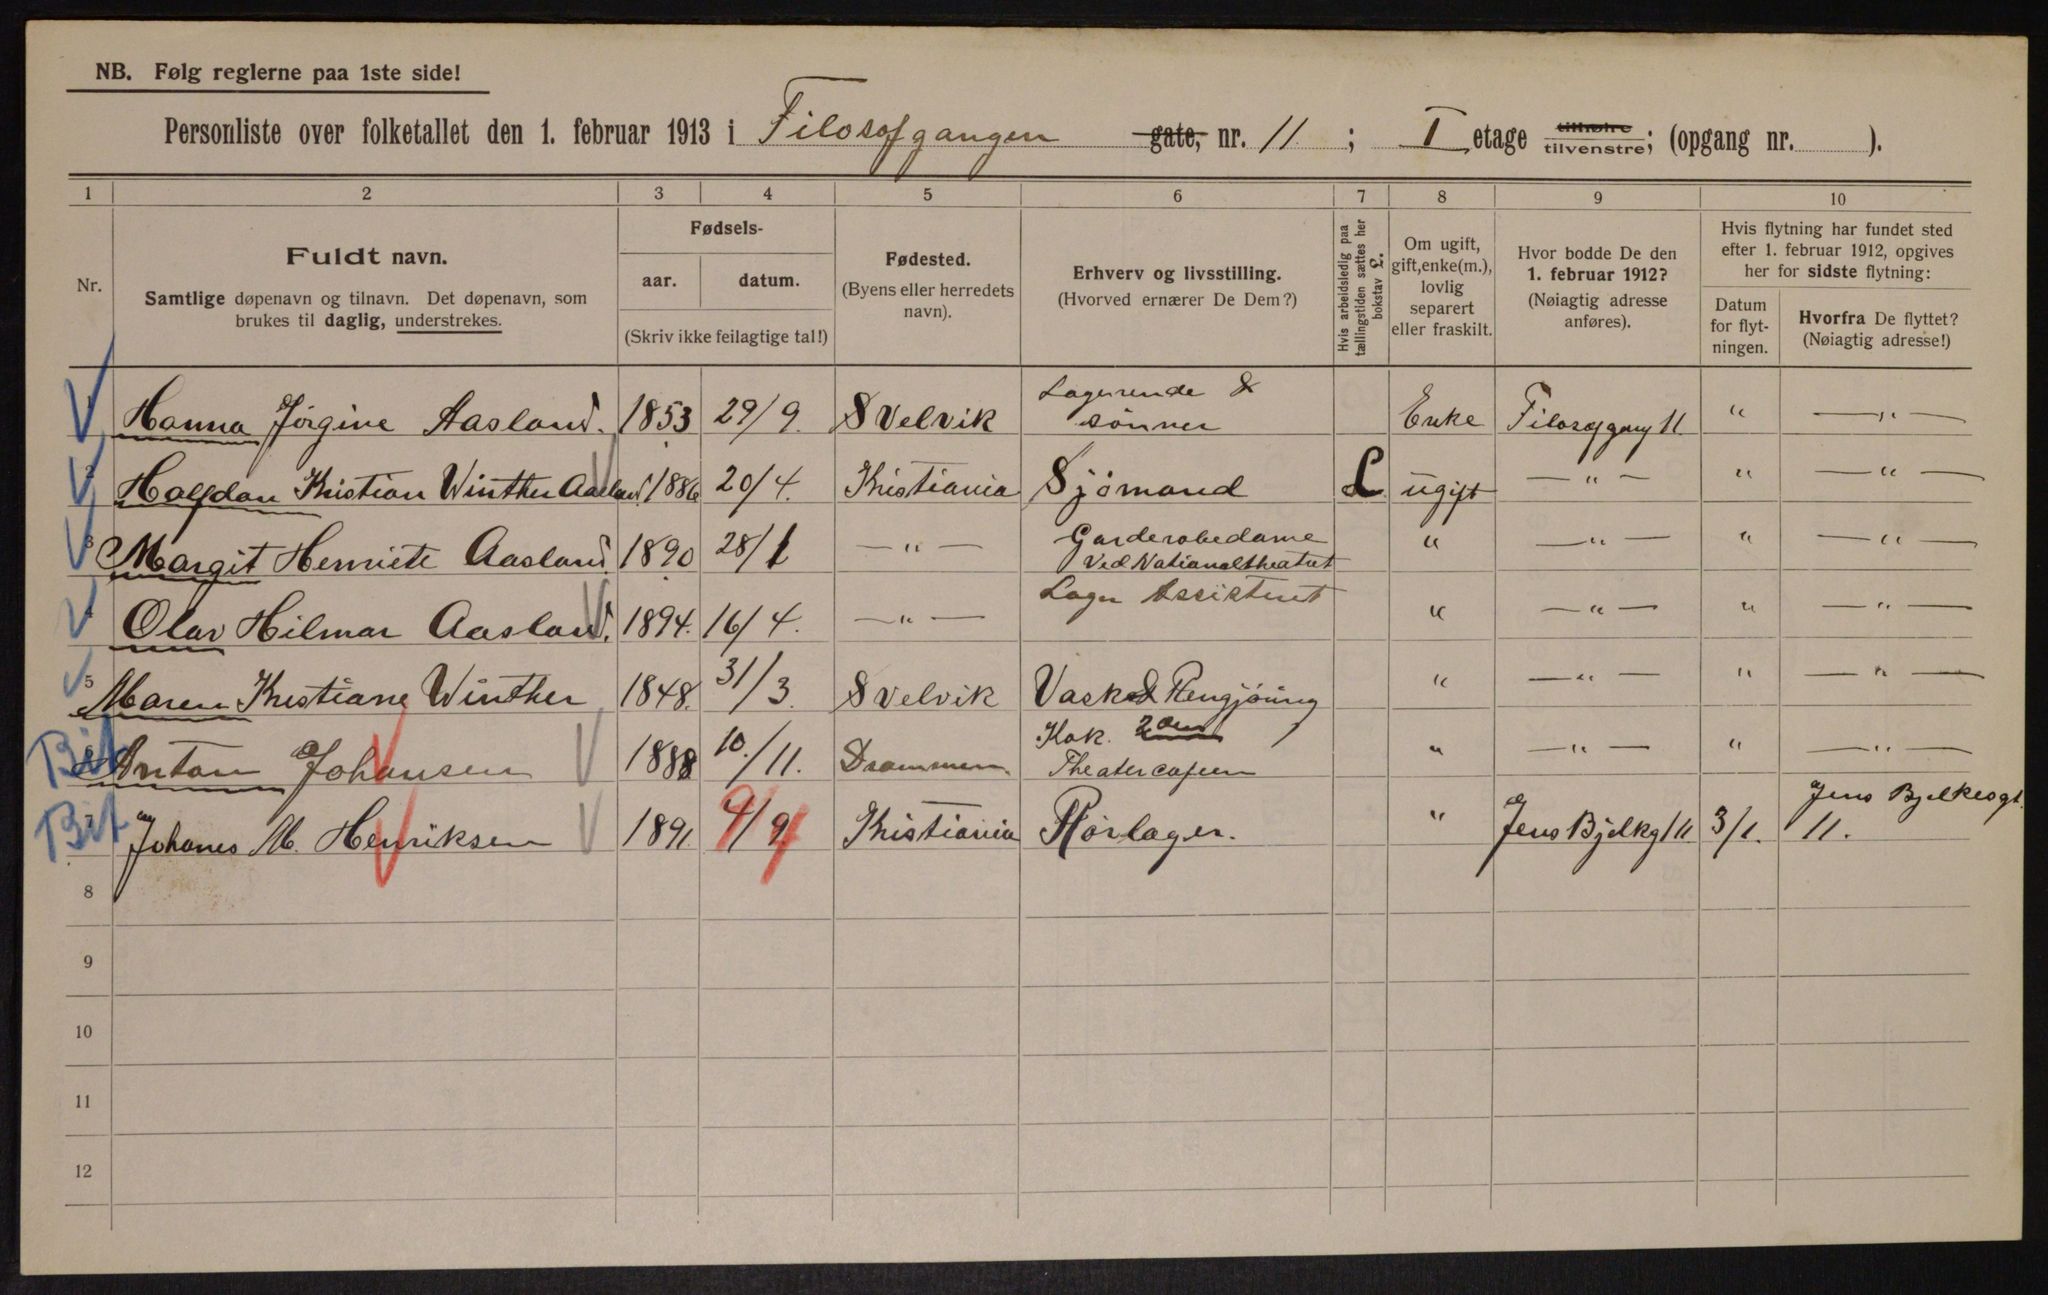 NB. Følg reglerne paa 1ste side!
Personliste over folketallet den 1. februar 1913 i Filosofgangen gate, nr. 11 ; I etage tilhøire tilvenstre; (opgang nr. ).
1 2 3 4 5 6 7 8 9 10
Nr.
Fuldt navn.
Samtlige døpenavn og tilnavn. Det døpenavn, som
brukes til daglig, understrekes.
Fødsels-
aar. datum.
(Skriv ikke feilagtige tal!)
Fødested.
(Byens eller herredets
navn).
Erhverv og livsstilling.
(Hvorved ernærer De Dem?)
Hvis arbeidsledig paa
tællingstiden sættes her
bokstav L.
Om ugift,
gift, enke(m.),
lovlig
separert
eller fraskilt.
Hvor bodde De den
1. februar 1912?
(Nøiagtig adresse
anføres).
Hvis flytning har fundet sted
efter 1. februar 1912, opgives
her for sidste flytning:
Datum
for flyt-
ningen.
Hvorfra De flyttet?
(Nøiagtig adresse!)
1 Hanna Jörgine Aasland. 1853 29/9. Svelvik & sønner Enke Filosofgang 11. " — " —
2 Halfdan Kristian Winther Aasland. 1886 20/4. Kristiania Sjömand L ugift — " — " — " —
3 Margit Henriete Aasland. 1890 28/1 — " — Garderobedame
Ved Nationaltheatret " — " — " — " —
4 Olav Hilmar Aasland. 1894. 16/4. — " — Lager Assistent " — " — " — " —
5 Maren Kristiane Winther 1848. 31/3. Svelvik Vask & Rengjöring " — " — " — " —
Bit 6 Anton Johansen 1888 10./11. Drammen. Kok.
Theatercafeen " — " — " — " —
Bit 7 Johanes M. Henriksen 1891. 4/9. Kristiania Rörlager. " Jens Bjelkg 11. 3/1. Jens Bjelkesgt.
11.
8
9
10
11
12